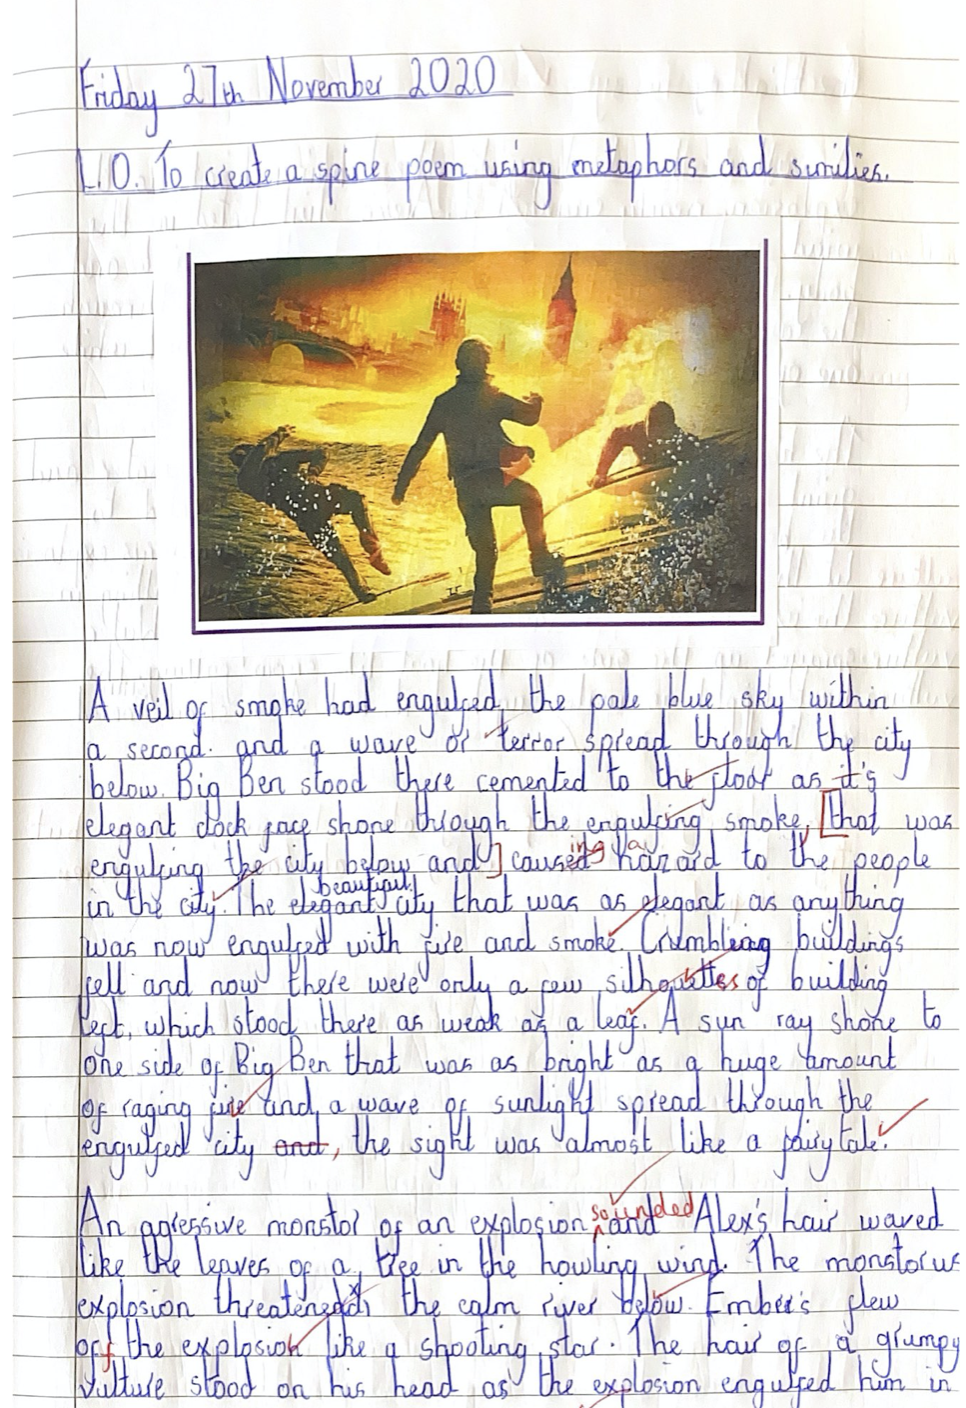 Friday 27th November 2020
L.O. To create a spine poem using metaphors and similies.
A veil of smoke had engulfed the pale blue sky within
a second. and a wave of terror spread through the city
below. Big Ben stood there cemented to the floor as it's
elegant clock face shone through the engulfing smoke, [that was
engulfing the city below and] caused ing a hazard to the people
in the city. The elegant beautiful city that was as elegant as anything
was now engulfed with fire and smoke. Crumbleing buildings
fell and now there were only a few silhouttes of building
left, which stood there as weak as a leaf. A sun ray shone to
one side of Big Ben that was as bright as a huge amount
of raging fire and a wave of sunlight spread through the
engulfed city and, the sight was almost like a fairytale.
An agressive monstor of an explosion sounded and Alex's hair waved
like the leaves of a tree in the howling wind. The monstorus
explosion threatened the calm river below. Ember's flew
off the explosion like a shooting star. The hair of a grumpy
vulture stood on his head as the explosion engulfed him in